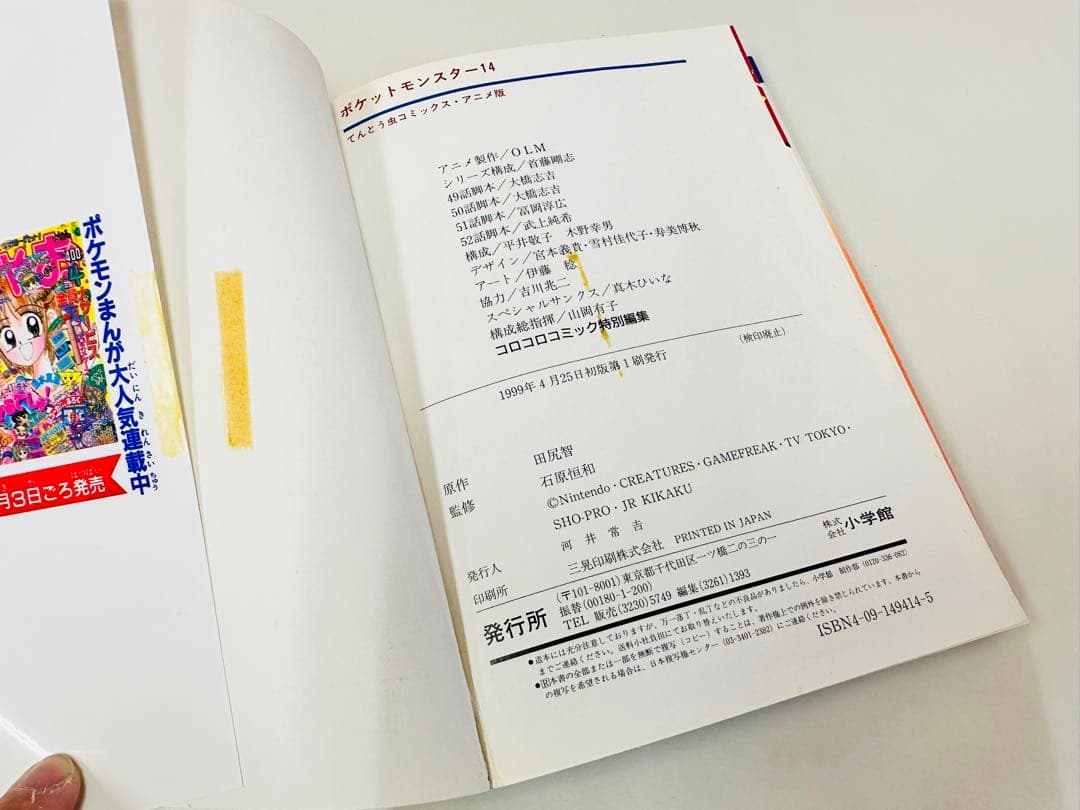 ポケモンまんが大人気連載中
だいにんきれんさいちゅう
はつばい
月3日ごろ発売
ポケットモンスター14
てんとう虫コミックス・アニメ版
アニメ製作／OLM
シリーズ構成／首藤剛志
49話脚本／大橋志吉
50話脚本／大橋志吉
51話脚本／冨岡淳広
52話脚本／武上純希
構成／平井敬子 木野幸男
デザイン／宮本義貴・雪村佳代子・寿美博秋
アート／伊藤 稔
協力／吉川兆二
スペシャルサンクス／真木ひいな
構成総指揮／山岡有子
コロコロコミック特別編集
1999年4月25日初版第1刷発行
（検印廃止）
原作 田尻智
監修 石原恒和
©Nintendo・CREATURES・GAMEFREAK・TV TOKYO・
SHO-PRO・JR KIKAKU
発行人 河井常吉
印刷所 三晃印刷株式会社 PRINTED IN JAPAN
発行所 （〒101-8001）東京都千代田区一ツ橋二の三の一 株式会社 小学館
振替（00180-1-200）
TEL 販売（3230）5749 編集（3261）1393
●造本には充分注意しておりますが、万一落丁・乱丁などの不良品がありましたら、小学館 制作部（0120-336-082）
までご連絡ください。送料小社負担にてお取り替えいたします。
●Ⓡ本書の全部または一部を無断で複写（コピー）することは、著作権法上での例外を除き禁じられています。本書から
の複写を希望される場合は、日本複写権センター（03-3401-2382）にご連絡ください。
ISBN4-09-149414-5